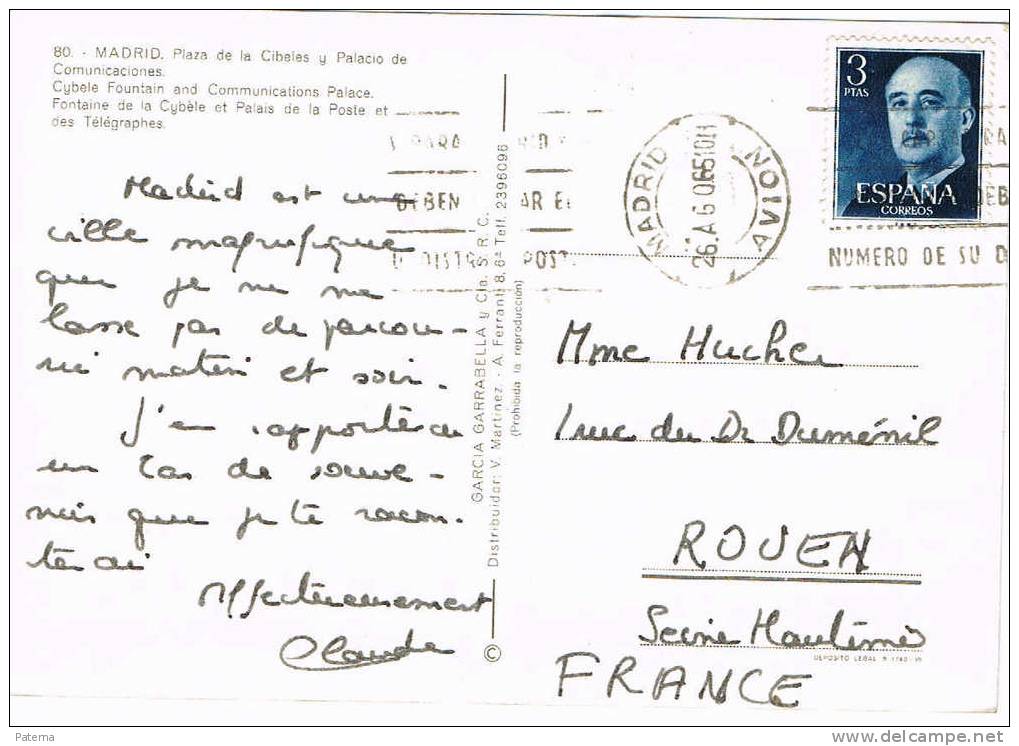 80. - MADRID. Plaza de la Cibeles y Palacio de
Comunicaciones.
Cybele Fountain and Communications Palace.
Fontaine de la Cybèle et Palais de la Poste et
des Télégraphes.
Madrid est une
ville magnifique
que je ne me
lasse pas de parcou-
rir matin et soir.
J'en rapporterai
un tas de souve-
nirs que je te racon-
terai
Affectueusement
Claude
GARCIA GARRABELLA y Cia. S. R. C.
Distribuidor: V. Martinez. - A. Ferrant, 8, 6ª Telf. 2396096
(Prohibida la reproducción)
©
PARA
DEBEN
DISTR POST
MADRID AVION
26.AGO65
3
PTAS
ESPAÑA
CORREOS
NUMERO DE SU D
Mme Hucher
1 rue du Dr Duménil
ROUEN
Seine Maritime
FRANCE
DEPOSITO LEGAL B
Paterna
www.delcampe.net